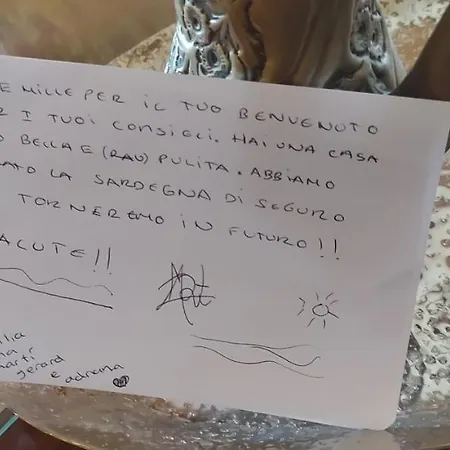 E MILLE PER IL TUO BENVENUTO
I TUOI CONSIGLI. HAI UNA CASA
BELLA E (RAU) PULITA. ABBIAMO
ATO LA SARDEGNA DI SEGURO
TORNEREMO IN FUTURO!!
ALUTE!!
martí
gerard
e adriana